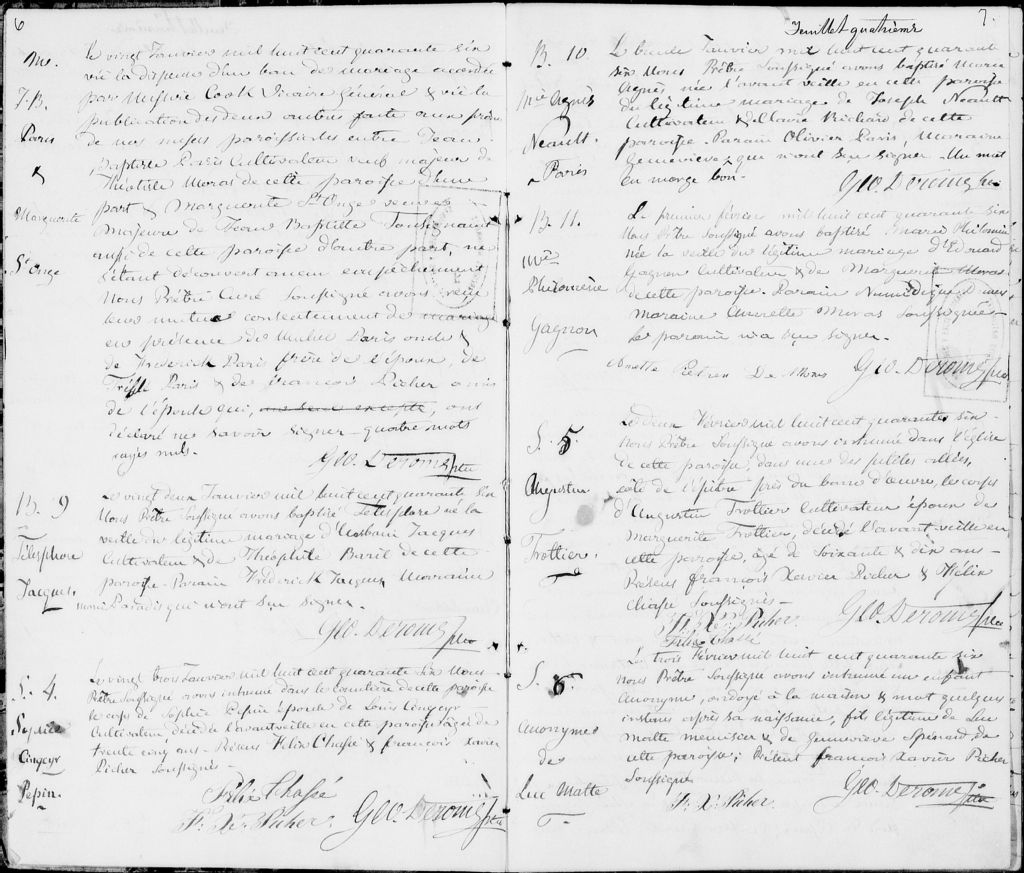 6
M.
J. B.
Paris
&
Marguerite
St Onge
Le vingt Janvier mil huit cent quarante six
vu la dispense d'un ban de mariage accordée
par Messire Cook Vicaire Général & vu la
publication des deux autres faite au prône
de nos messes paroissiales entre Jean
Baptiste Paris Cultivateur veuf majeur de
Théotiste Moras de cette paroisse d'une
part & Marguerite St Onge veuve
majeure de Jean Baptiste
aussi de cette paroisse d'autre part, ne
s'étant découvert aucun empêchement
Nous Prêtre Curé Soussigné avons reçu
leur mutuel consentement de mariage
en présence de Paris oncle &
de Frederick Paris frère de l'époux, de
Paris & de François Picher amis
de l'épouse qui, un seul excepté, ont
déclaré ne savoir signer - quatre mots
rayés nuls.
Geo. Derome Ptre
B. 9
Télesphore
Jacques
Le vingt deux Janvier mil huit cent quarante six
Nous Prêtre soussigné avons baptisé Télesphore né la
veille du légitime mariage d'Urbain Jacques
Cultivateur & de Théophile Baril de cette
paroisse - Parain Frederick Jacques Marraine
Paradis qui n'ont su signer.
Geo. Derome Ptre
S. 4.
Sophie
Cingeyr
Pepin
Le vingt trois Janvier mil huit cent quarante six Nous
Prêtre Soussigné avons inhumé dans le cimetière de cette paroisse
le corps de Sophie Pepin épouse de Louis Cingeyr
Cultivateur, décédée l'avant veille en cette paroisse agée de
trente cinq ans - Présens Felix Chassé & François Xavier
Picher Soussignés -
Félix Chassé
F. X. Picher. Geo. Derome Ptre
7.
Feuillet quatrième
B. 10
Mie Agnès
Neault
Paris
Le trente Janvier mil huit cent quarante
six Nous Prêtre Soussigné avons baptisé Marie
Agnès née l'avant veille en cette paroisse
du légitime mariage de Joseph Neault
Cultivateur & de Claire Richard de cette
paroisse. Parain Olivier Paris, Marraine
Geneviève qui n'ont su signer. Un mot
en marge bon.
Geo. Derome Ptre
B. 11.
Mie
Philomène
Gagnon
Le premier février mil huit cent quarante six
Nous Prêtre Soussigné avons baptisé Marie Philomène
née la veille du légitime mariage d'Edouard
Gagnon Cultivateur & de Marguerite Moras
de cette paroisse. Parain
Maraine Aurelle Moras Soussignée -
Le parain n'a su signer.
Geo. Derome Ptre
S. 5
Augustin
Trottier.
Le deux Février mil huit cent quarante six -
Nous Prêtre Soussigné avons inhumé dans l'église
de cette paroisse, dans une des petites allées,
côté de l'épitre près du banc d'œuvre, le corps
d'Augustin Trottier Cultivateur époux de
Marguerite Trottier, décédé l'avant veille en
cette paroisse, agé de Soixante & dix ans -
Présens François Xavier Picher & Félix
Chassé Soussignés -
F. X. Picher Geo. Derome Ptre
Félix Chassé
S. 6.
Anonyme
de
Luc Matte
Le trois Février mil huit cent quarante six
Nous Prêtre Soussigné avons inhumé un enfant
Anonyme, ondoyé à la maison & mort quelques
instans après sa naissance, fils légitime de Luc
Matte menuisier & de Geneviève Spénard de
cette paroisse; Présent François Xavier Picher
Soussigné
F. X. Picher Geo. Derome Ptre